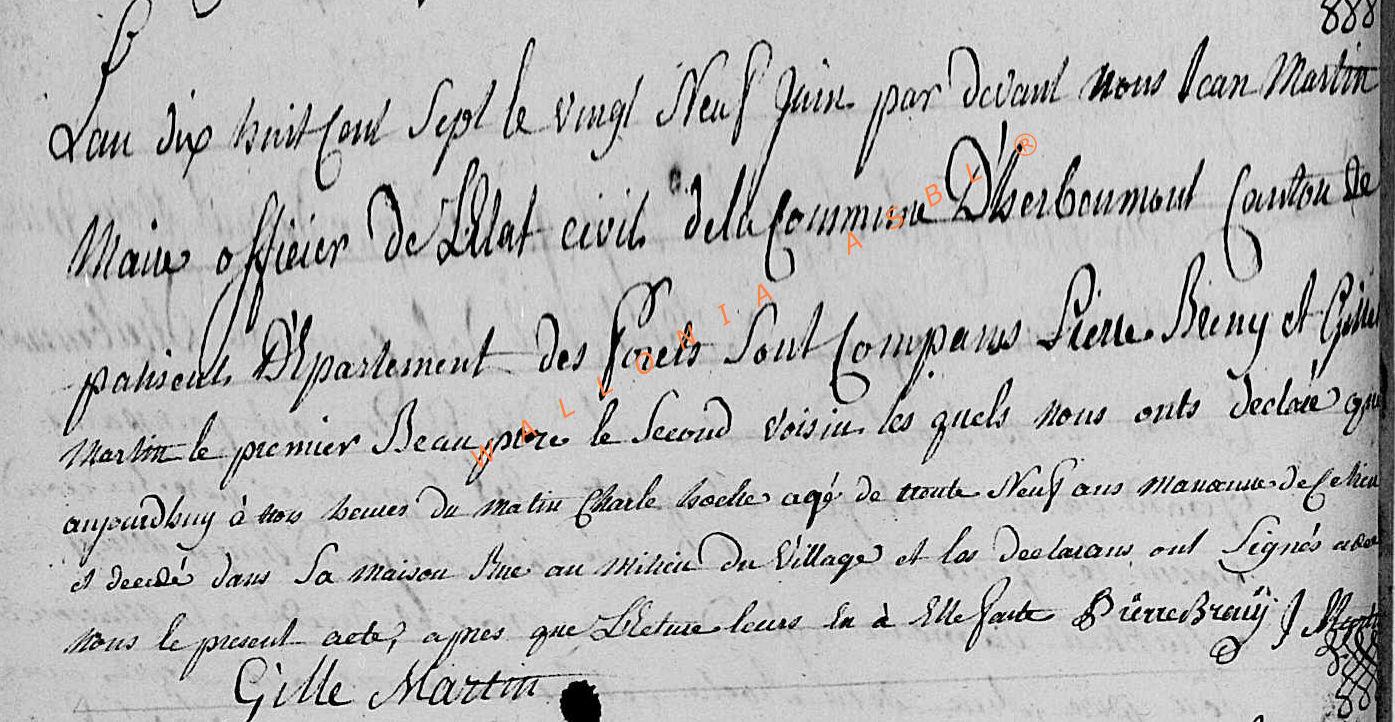 888
L'an dix huit Cent Sept le vingt Neuf Juin par devant nous Jean Martin
Maire officier de L'Etat civil de la Commune D'herbeumont Canton de
paliseul Département des forets Sont Comparus Pierre Breny et Gille
Martin le premier Beau pere le Second voisin les quels nous onts declaré que
aujourdhuy à trois heures du matin Charle hoche agé de trente Neuf ans Manoeuvre de Ce lieu
et decedé dans Sa maison Rue au Milieu Du Village et les declarans ont Signés avec
nous le present acte, apres que Lecture leurs En à Etté faite Pierre Breny J Martin
Gille Martin
WALLONIA ASBL ®